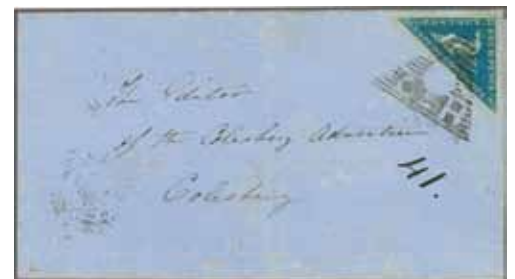 The Editor
of the Colesberg Advertiser
Colesberg
41.